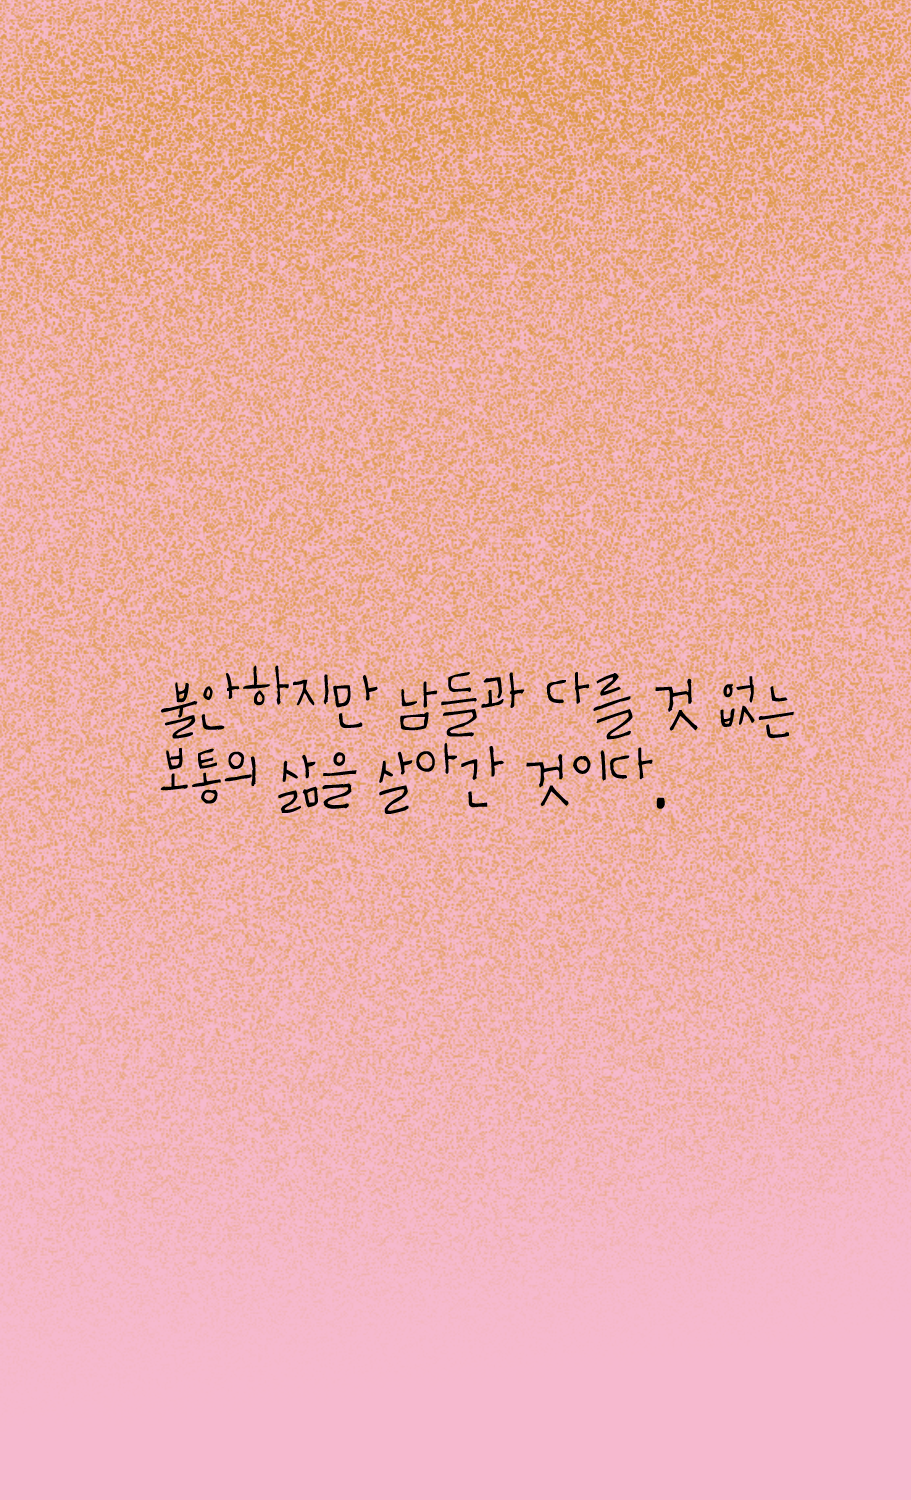 불안하지만 남들과 다를 것 없는
보통의 삶을 살아간 것이다.